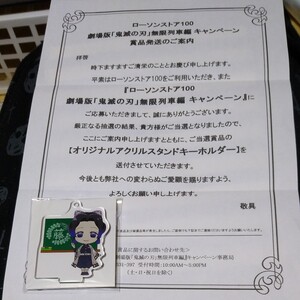 ローソンストア100
劇場版「鬼滅の刃」無限列車編 キャンペーン
賞品発送のご案内
拝啓
時下ますますご清栄のこととお慶び申し上げます。
平素はローソンストア100をご利用いただき、また
『ローソンストア100
劇場版「鬼滅の刃」無限列車編 キャンペーン』に
ご応募いただきまして、誠にありがとうございます。
厳正なる抽選の結果、貴方様がご当選となりましたので、
ここにご案内申し上げますとともに、ご当選賞品の
【オリジナルアクリルスタンドキーホルダー】を
送付させていただきます。
今後とも弊社への変わらぬご愛顧を賜りますよう、
よろしくお願い申し上げます。
敬具
賞品に関するお問い合わせ先
劇場版「鬼滅の刃」無限列車編』キャンペーン事務局
受付時間:10:00AM~5:00PM
(土・日・祝日を除く)